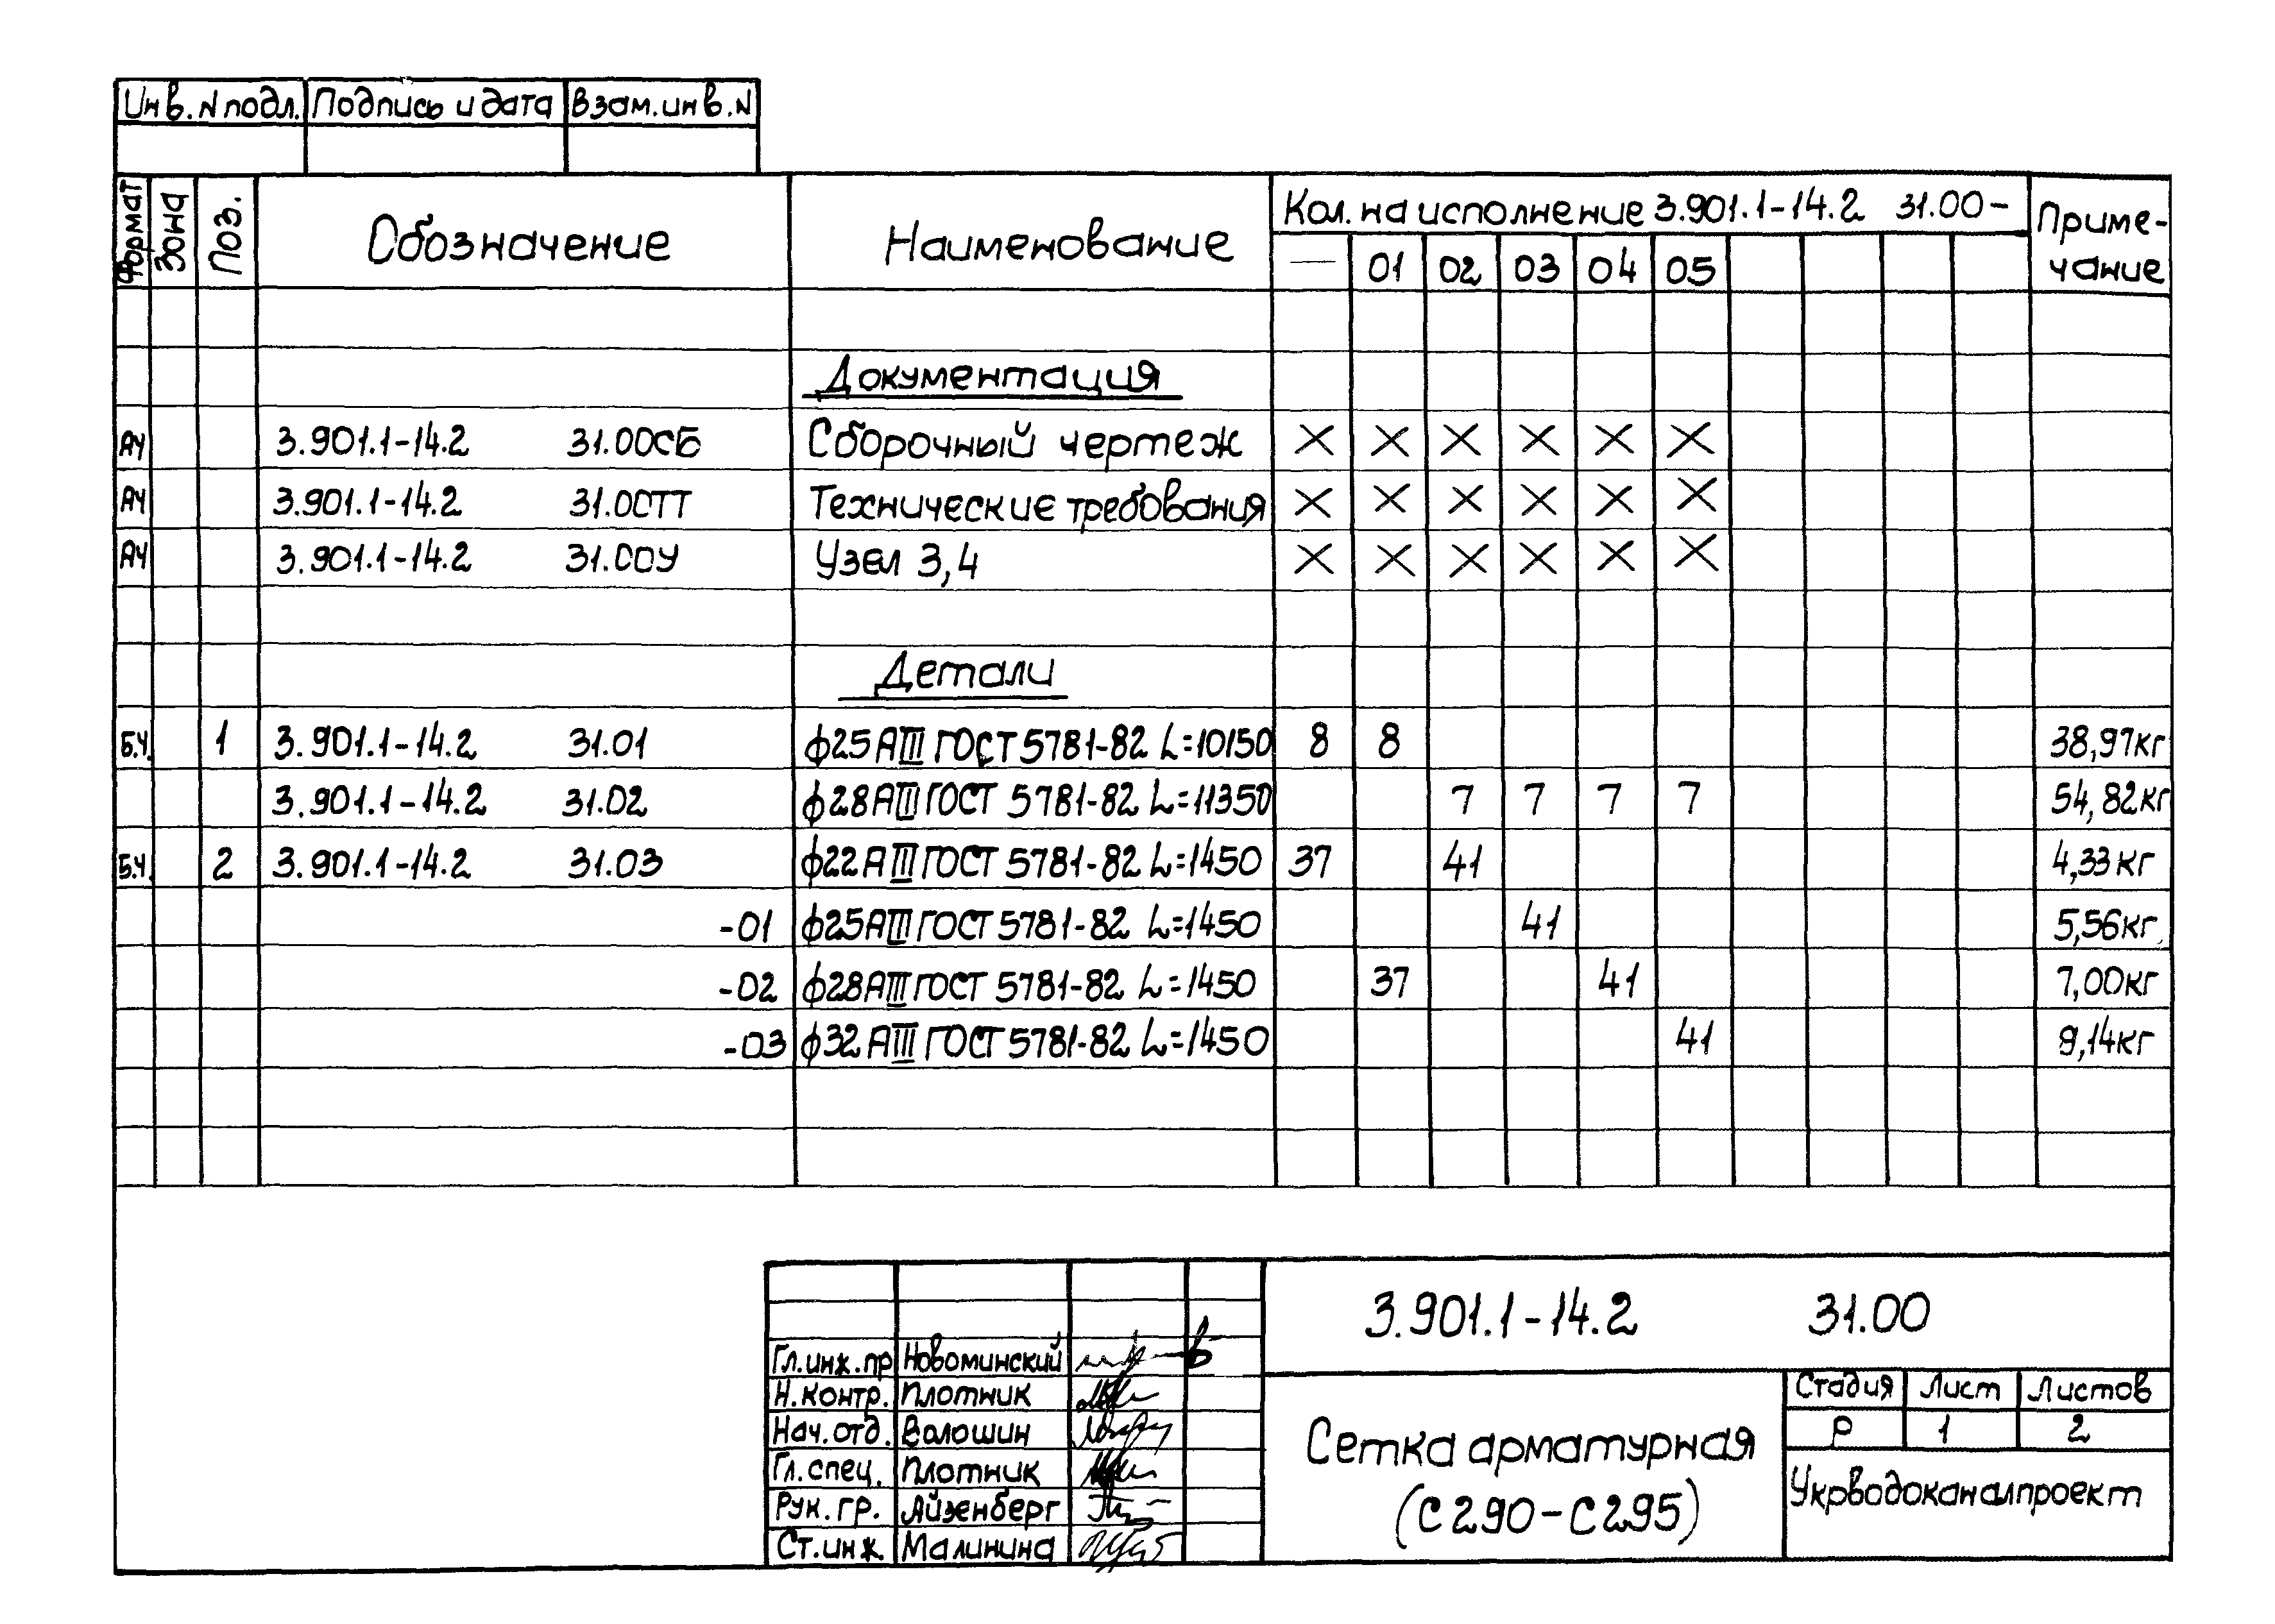 Инв. N подл. Подпись и дата Взам. инв. N
Формат Зона Поз. Обозначение Наименование Кол. на исполнение 3.901.1-14.2 31.00- Приме-
— 01 02 03 04 05 чание
Документация
А4 3.901.1-14.2 31.00СБ Сборочный чертеж X X X X X X
А4 3.901.1-14.2 31.00ТТ Технические требования X X X X X X
А4 3.901.1-14.2 31.00У Узел 3,4 X X X X X X
Детали
Б.Ч. 1 3.901.1-14.2 31.01 ϕ25 АIII ГОСТ 5781-82 L=10150 8 8 38,97кг
3.901.1-14.2 31.02 ϕ28 АIII ГОСТ 5781-82 L=11350 7 7 7 7 54,82кг
Б.Ч. 2 3.901.1-14.2 31.03 ϕ22 АIII ГОСТ 5781-82 L=1450 37 41 4,33кг
-01 ϕ25 АIII ГОСТ 5781-82 L=1450 41 5,56кг
-02 ϕ28 АIII ГОСТ 5781-82 L=1450 37 41 7,00кг
-03 ϕ32 АIII ГОСТ 5781-82 L=1450 41 9,14кг
3.901.1-14.2 31.00
Гл. инж. пр Новоминский
Н. контр. Плотник
Нач. отд. Волошин
Гл. спец. Плотник
Рук. гр. Айзенберг
Ст. инж. Малинина
Сетка арматурная
(С290-С295)
Стадия Лист Листов
Р 1 2
Укрводоканалпроект